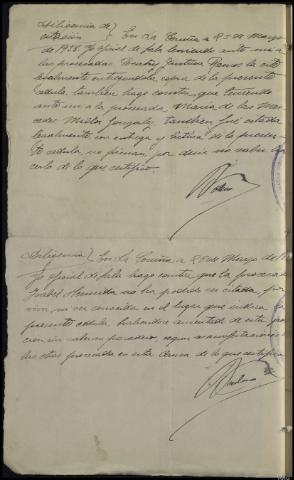 Diligencia de
citación } En La Coruña a 25 de Marzo
de 1938. Yo oficial de Sala teniendo ante mi a
las procesadas Beatriz Ramos la cité
legalmente entregandole copia de la presente
cedula, tambien hago constar que teniendo
ante mi a la procesada Maria de las Mer-
cedes Gonzalez tambien fué citada
legalmente con entrega y lectura de la presen-
te cedula no firman por decir no saber
de lo que certifico
Diligencia } En La Coruña a 25 de Marzo de
Yo oficial de Sala hago constar que la procesada
Isabel no ha podido ser citada, por
no ser conocida en el lugar que indica la
presente cedula, habiendose ausentado de esta
cion sin saberse paradero, segun manifestaciones de
las otras procesadas en esta causa de lo que certifico